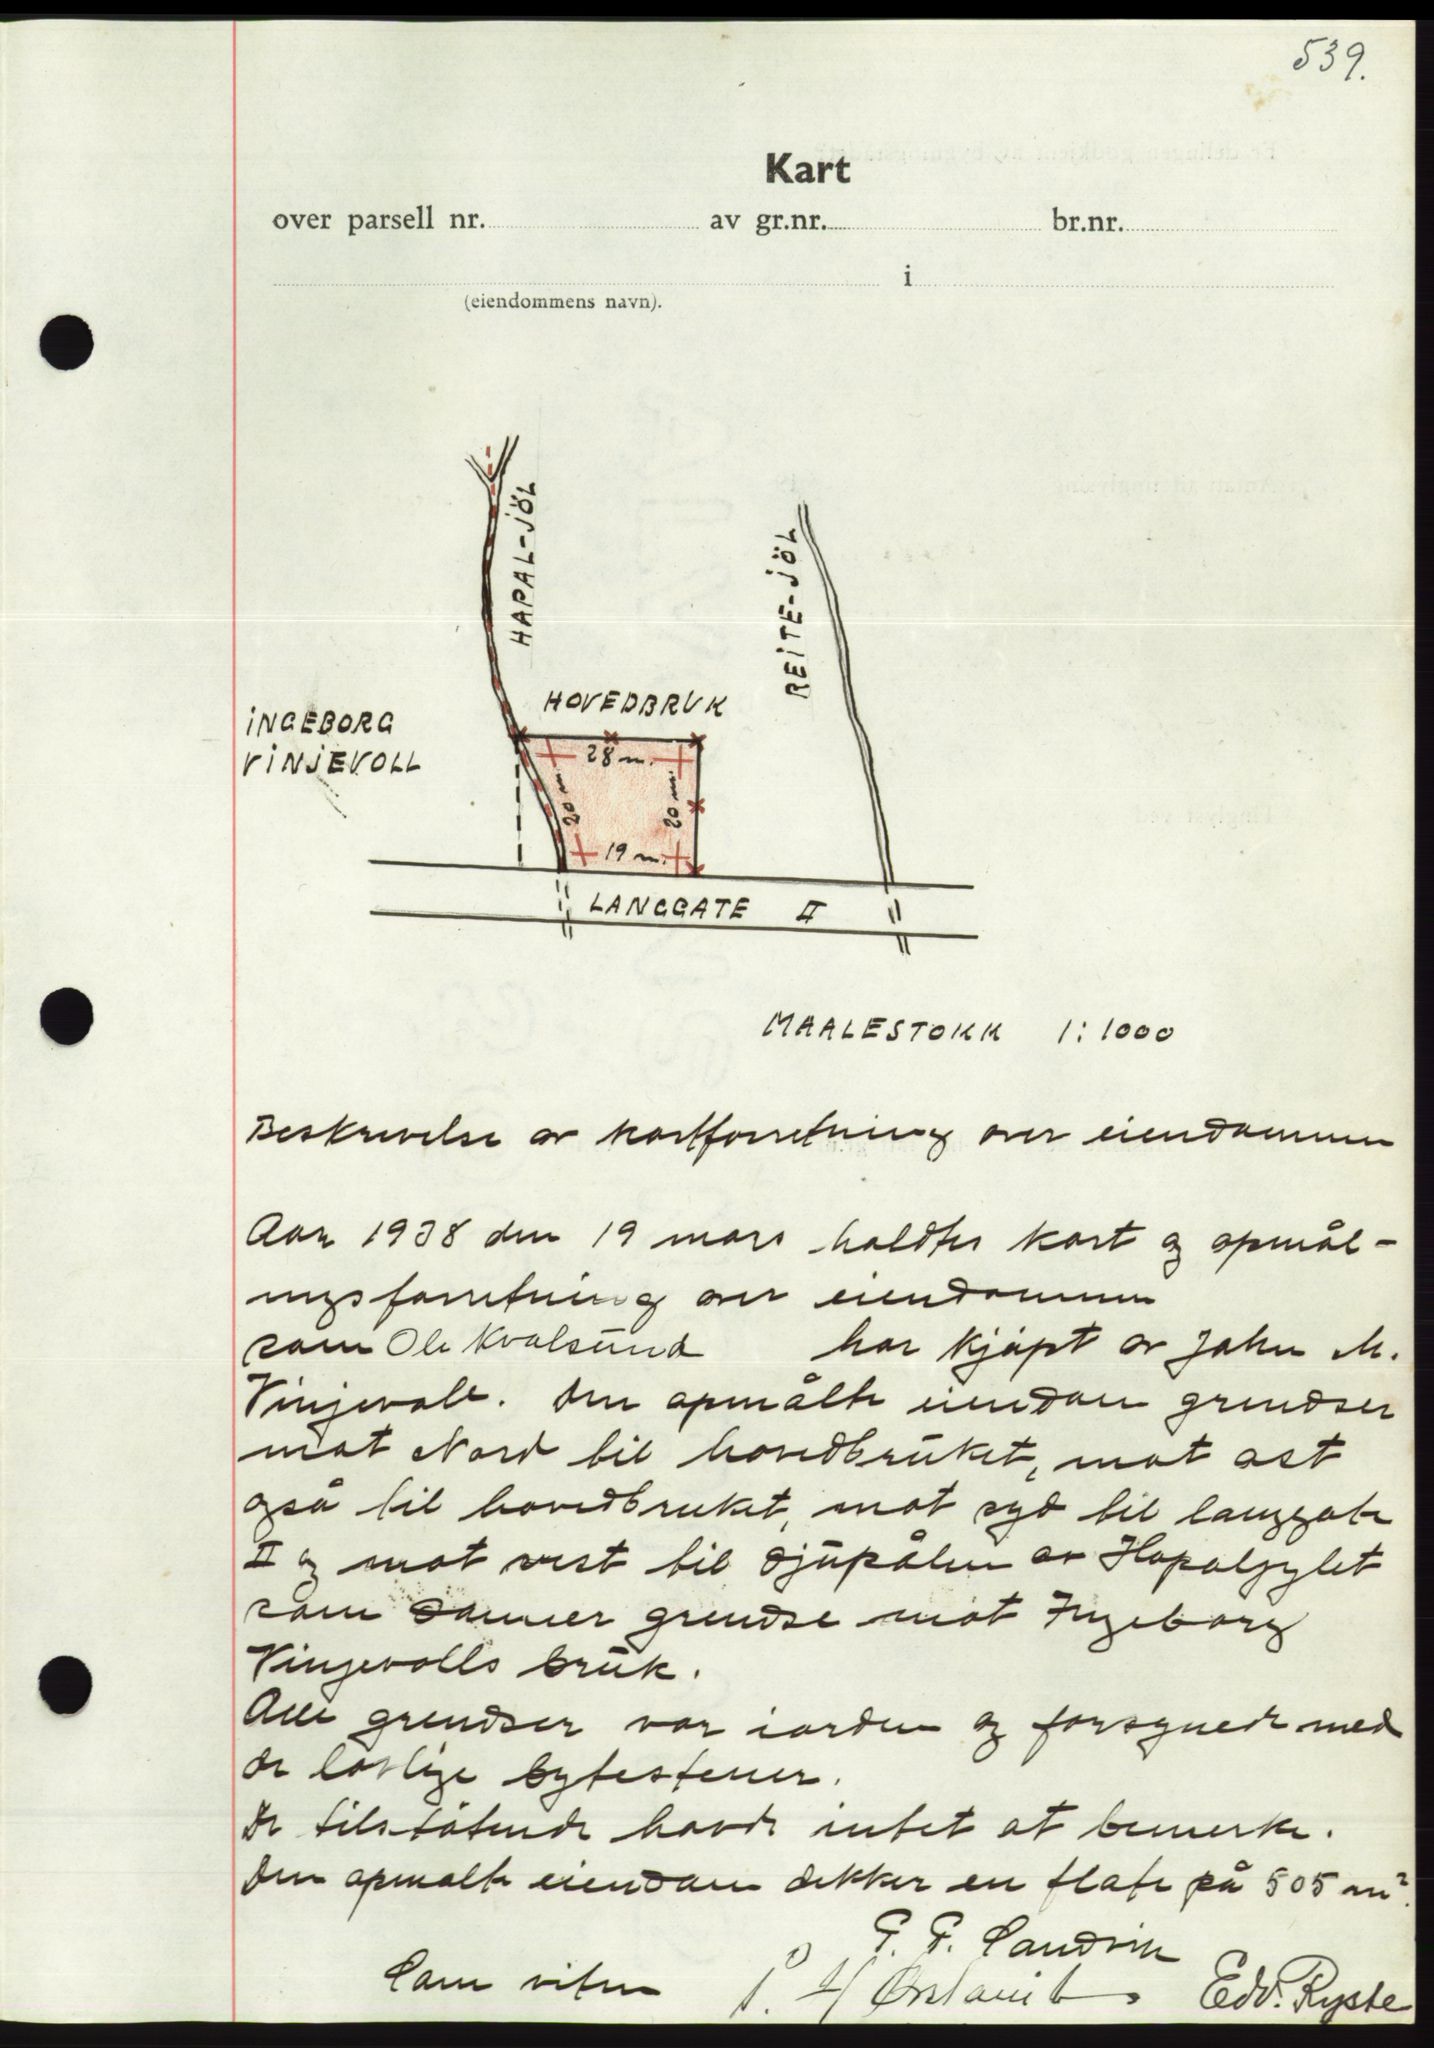 539.
Kart
over parsell nr. av gr.nr. br.nr.
i
(eiendommens navn).
HAPAL-JÖL
REITE-JÖL
HOVEDBRUK
INGEBORG
VINJEVOLL
28 m.
20 m.
20 m.
19 m.
LANGGATE II
MAALESTOKK 1:1000
Beskrivelse av kartforretning over eiendommen
Aar 1938 den 19 mars holdtes kart og opmål-
ingsforretning over eiendommen
som Ole Kvalsund har kjøpt av John M.
Vinjevoll. Den opmålte eiendom grendser
mot Nord til hovedbruket, mot ost
også til hovedbruket, mot syd til langgate
II og mot vest til djupålen av Hapaljylet
som danner grendse mot Ingeborg
Vinjevolls bruk.
Alle grendser var i orden og forsynede med
de lovlige bytestener.
De tilstøtende havde intet at bemerke.
Den opmalte eiendom dekker en flate på 505 m².
P. P. Sandvik
Som vitne Edv. Ryste